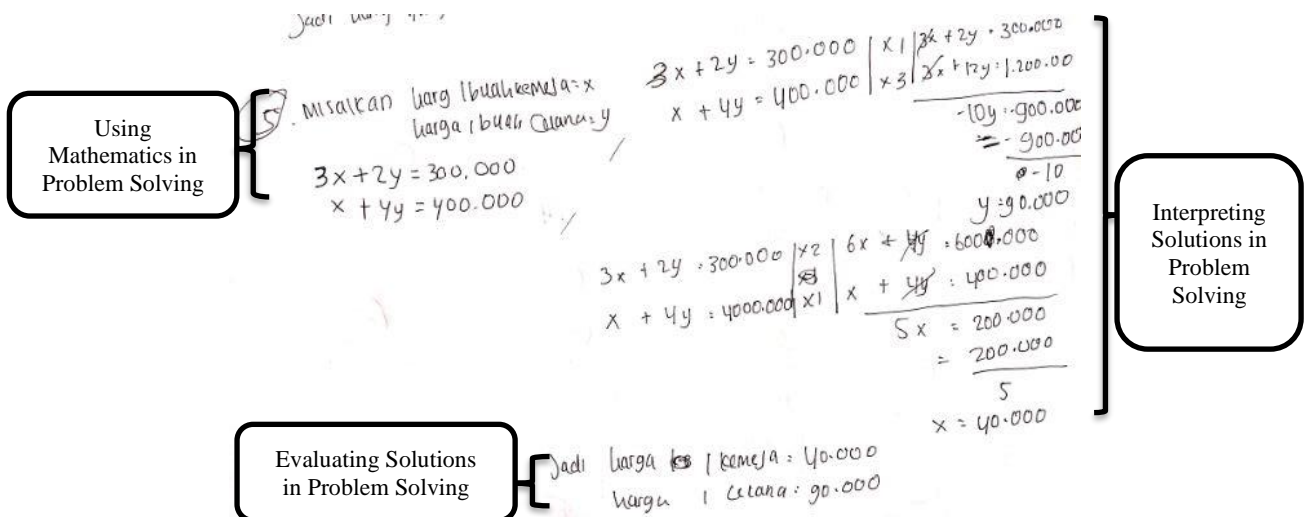 Jadi
Using
Mathematics in
Problem Solving
5. Misalkan harg 1 buah kemeja = x
harga 1 buah Celana = y
3x + 2y = 300.000
x + 4y = 400.000
3x + 2y = 300.000 | x1 | 3x + 2y = 300.000
x + 4y = 400.000 | x3 | 3x + 12y = 1.200.00
-10y = -900.000
= -900.00
-10
y = 90.000
3x + 2y = 300.000 | x2 | 6x + 4y = 600.000
x + 4y = 4000.000 | x1 | x + 4y = 400.000
5x = 200.000
= 200.000
5
x = 40.000
Interpreting
Solutions in
Problem
Solving
Evaluating Solutions
in Problem Solving
Jadi harga 1 kemeja = 40.000
harga 1 Celana = 90.000